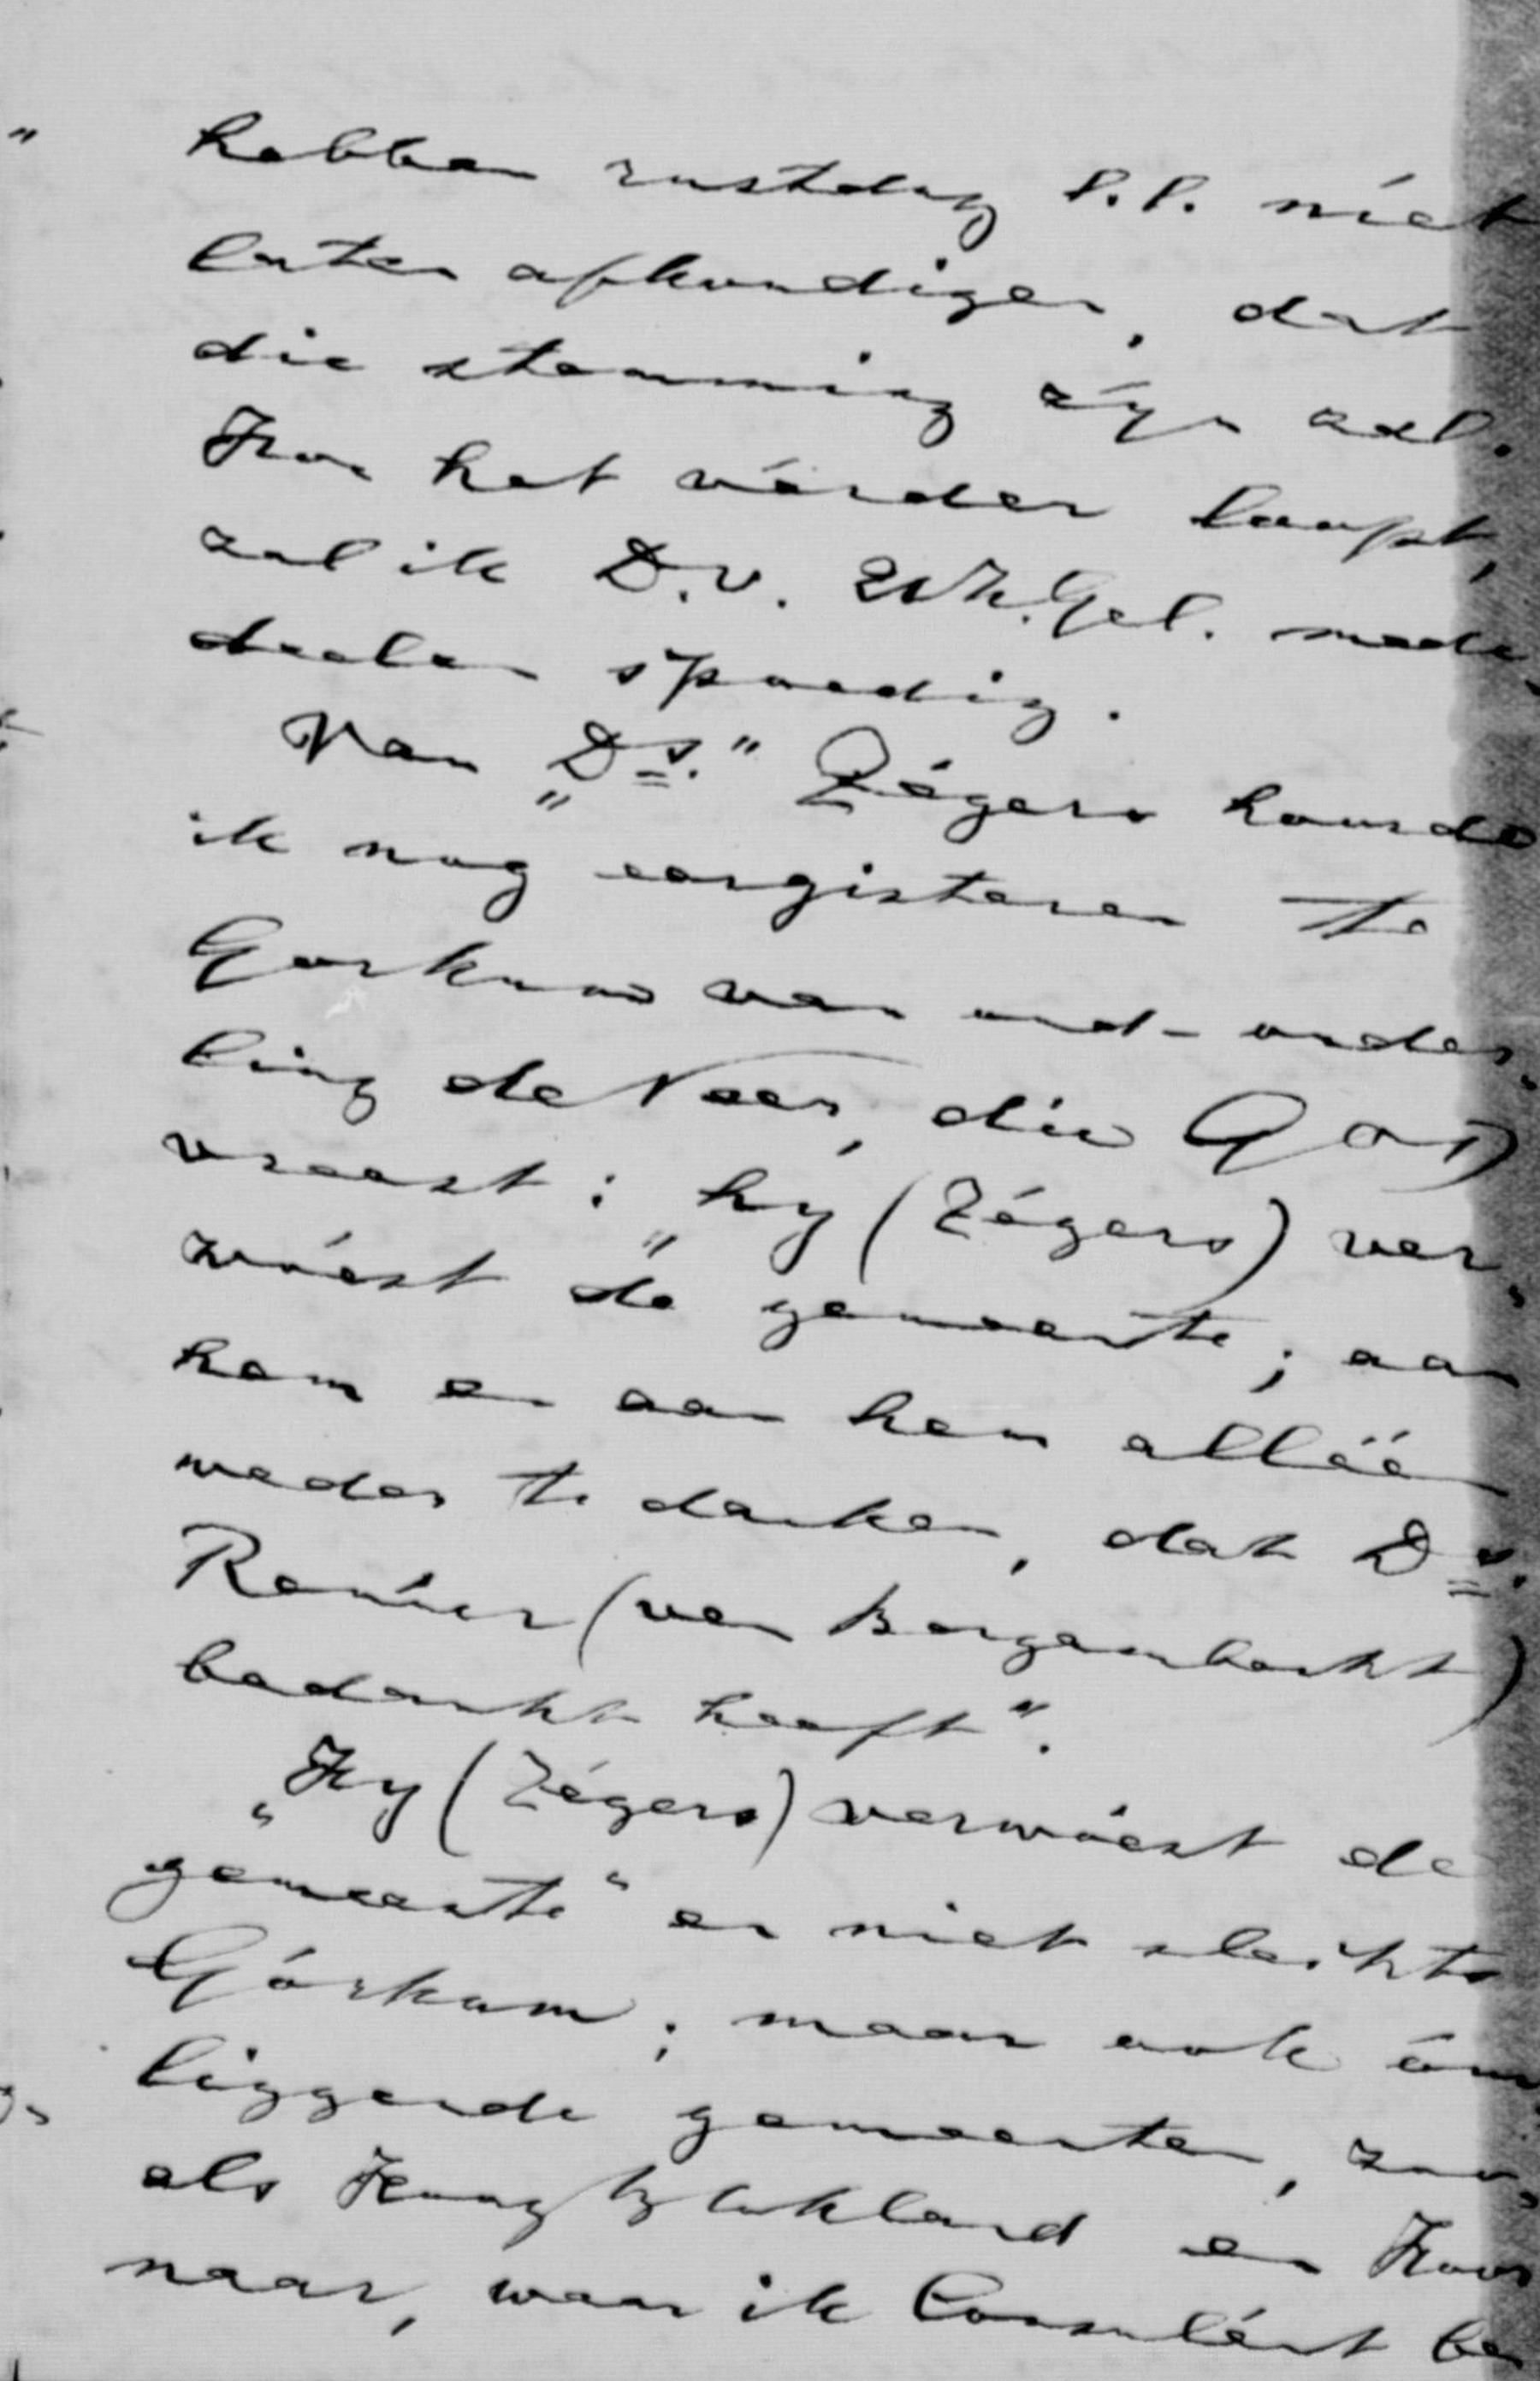 hebben rustdag l.l. niet
laten afkondigen, dat
die stemming zijn zal.
Hoe het vérder loopt,
zal ik D.v. UWh.Gel. mede„
deelen spoedig.
Van „Ds.” Zégers hoorde
ik nog eergisteren te
Gorkum van oud-ouder„
ling de Neer, die GOD
vreest: „hij (Zégers) ver„
wóest de gemeente; aan
hem en aan hem alléén
weder te danken, dat Ds.
(van
bedankt heeft”.
„Hij (Zégers) verwóest de
gemeente” en niet slechts
Górkum; maar ook óm
liggende gemeenten, zoo„
als Hoog Blokland en Hoor
naar, waar ik Consulént ben